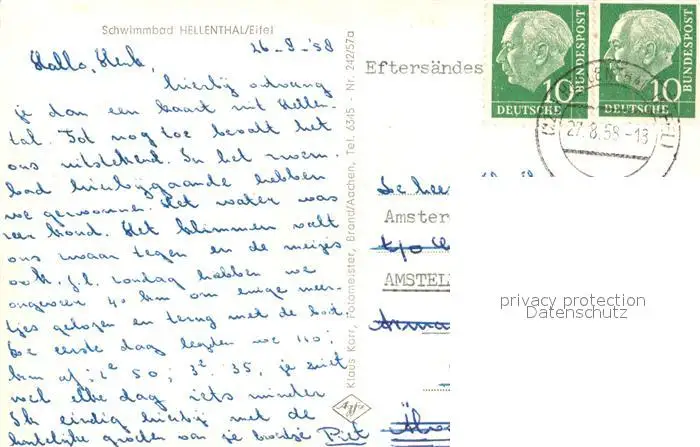 Schwimmbad HELLENTHAL/Eifel
26-8-'58
Hallo, Henk,
hierbij ontvang
je dan een kaart uit Hellen-
tal. Tot nog toe bevalt het
ons uitstekend. In het zwem-
bad hierbijgaande hebben
we gezwommen. Het water was
zeer koud. Het klimmen valt
ons zwaar tegen en de meisjes
ook. J.l. zondag hebben we
ongeveer 40 km om enige meer-
tjes gelopen en terug met de bot.
De eerste dag legden we 110;
km af; 2e 50; 3e 35, je ziet
wel elke dag iets minder
Ik eindig hierbij met de
hartelijke groeten van je broertje Piet
Klaus Karr, Fotomeister, Brand/Aachen, Tel. 6345 - Nr. 242/57a
Agfa
Eftersändes
10
DEUTSCHE
BUNDESPOST
10
DEUTSCHE
BUNDESPOST
27.8.58-18
De heer
Amster
t/o
AMSTEL
privacy protection
Datenschutz